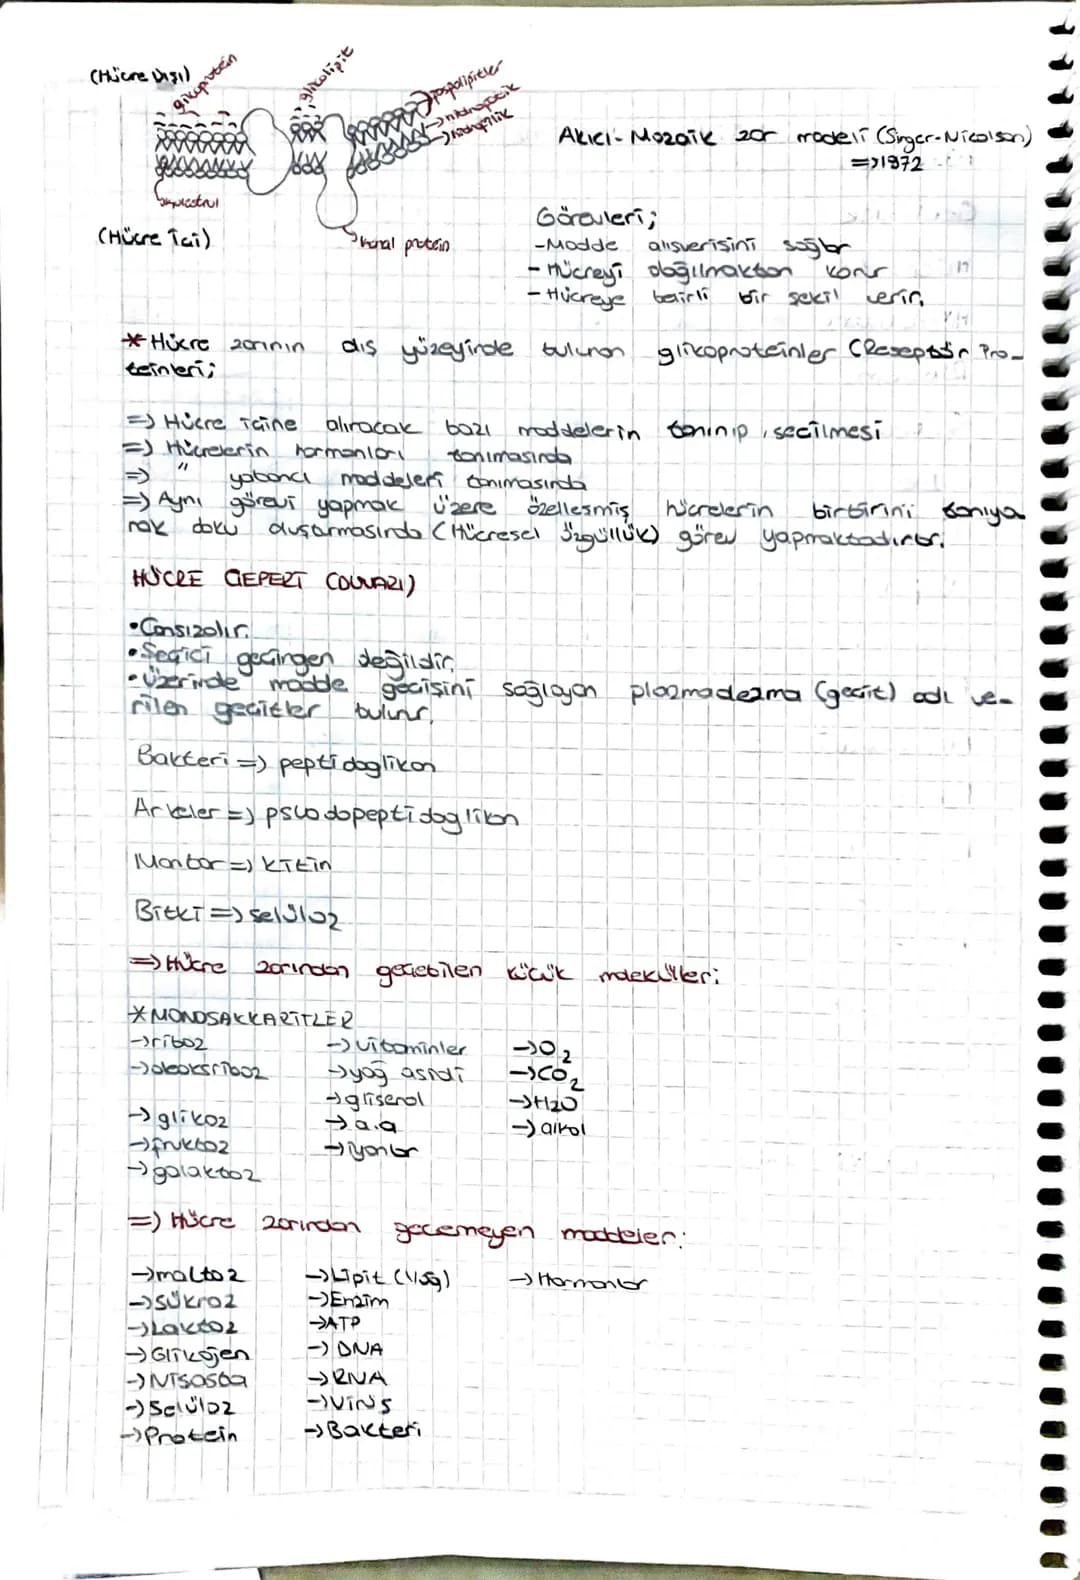 (Hücre Dışı)
glikoprotein
glikolipit
fosfolipitler
hidrofilik
Akıcı-Mozaik zar modeli (Singer-Nicolson)
=>1972
(Hücre İçi)
kanal protein
Görevleri;
-Madde alışverişini sağlar
-Hücreyi dağılmaktan korur
-Hücreye belirli bir şekil verir.
*Hücre zarının dış yüzeyinde bulunan glikoproteinler (Reseptör Pro-
teinleri;
=> Hücre içine alınacak bazı maddelerin tanınıp, seçilmesi
=> Hücrelerin hormonları tanımasında
=> " yabancı maddeleri tanımasında
=> Aynı görevi yapmak üzere özelleşmiş hücrelerin birbirini tanıya
rak doku oluşturmasında (Hücresel Özgüllük) görev yapmaktadırlar.
HÜCRE ÇEPERİ (DUVARI)
•Cansızdır.
•Seçici geçirgen değildir.
•Üzerinde madde geçişini sağlayan plazmadezma (geçit) adı ve-
rilen geçitler bulunur.
Bakteri => peptidoglikan
Arkeler => psodopeptidoglikan
Mantar => kitin
Bitki => selüloz
=> Hücre zarından geçebilen küçük moleküller;
*MONOSAKKARİTLER
->riboz ->vitaminler ->O2
->deoksriboz ->yağ asidi ->CO2
->gliserol ->H2O
->glikoz ->a.a ->alkol
->fruktoz ->iyonlar
->galaktoz
=> Hücre zarından geçemeyen maddeler:
->maltoz ->Lipit (Yağ) ->Hormonlar
->sükroz ->Enzim
->Laktoz ->ATP
->Glikojen ->DNA
->Nişasta ->RNA
->Selüloz ->Virüs
->Protein ->Bakteri